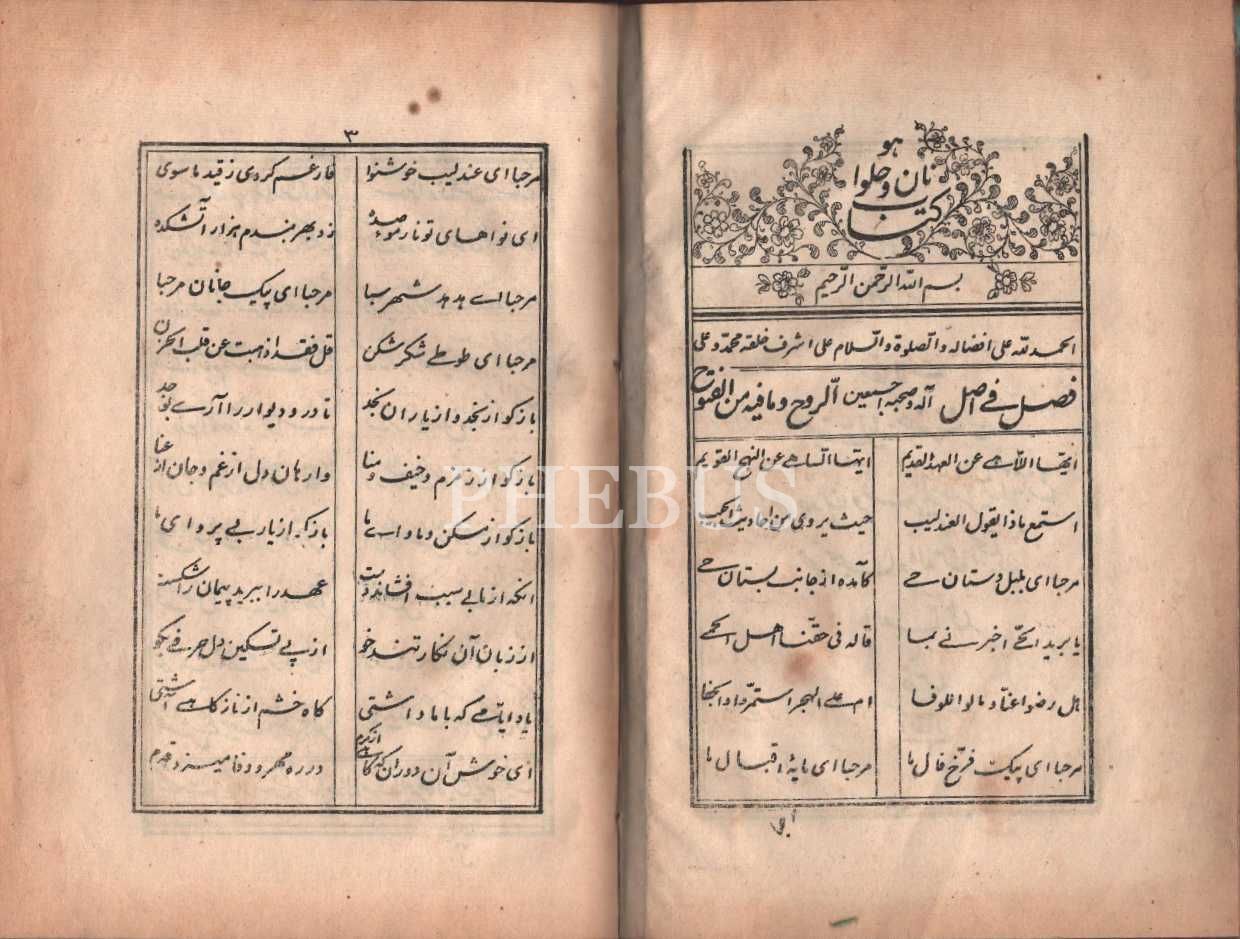 هو
نان و حلوا
کتاب
بسم الله الرحمن الرحیم
الحمد لله علی افضاله والصلوة والسلام علی اشرف خلقه محمد و علی
آله و صحبه اجمعین فصل فی اصل الروح و ما فیه من الفتوح
ایها اللاهی عن العهد القدیم ایها الساهی عن النهج القویم
استمع ماذا یقول العندلیب حیث یروی من احادیث الحبیب
مرحبا ای بلبل دستان حی کآمده از جانب بستان حی
یا برید الحی اخبرنی بما قاله فی حقنا اهل الحمی
هل رضوا عنا و مالوا للوفا ام علی الهجر استمروا والجفا
مرحبا ای پیک فرخ فال ما مرحبا ای مایهٔ اقبال ما
۳
مرحبا ای عندلیب خوشنوا فارغم کردی ز قید ماسوی
ای نواهای تو نار موصده زد بهر بندم هزار آتشکده
مرحبا ای هدهد شهر سبا مرحبا ای پیک جانان مرحبا
مرحبا ای طوطی شکر شکن قل فقد اذهبت عن قلب الحزن
بازکو از نجد و از یاران نجد تا در و دیوار را آری بوجد
بازکو از زمزم و خیف و منا وارهان دل از غم و جان از عنا
بازکو از مسکن و ماوای ما بازکو از یار بی پروای ما
آنکه از ما بی سبب افشاند دست عهد را ببرید پیمان را شکست
از زبان آن نکار تند خو از پی تسکین دل حرفی بکو
یاد ایامی که با ما داشتی کاه خشم از ناز کاهی آشتی
ای خوش آن دوران که کاهی از کرم در ره مهر و وفا میزد قدم
PHEBUS